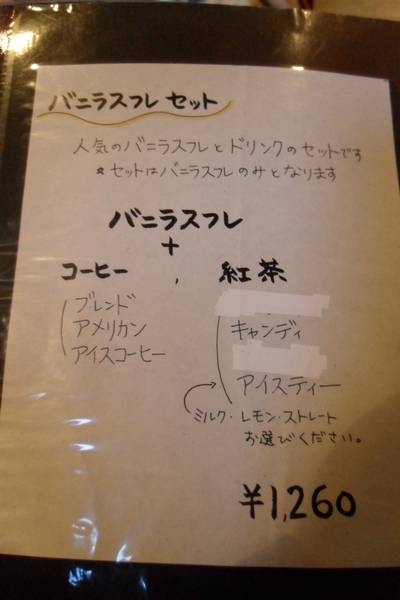 バニラスフレ セット
人気のバニラスフレとドリンクのセットです
* セットはバニラスフレのみとなります
バニラスフレ
+
コーヒー , 紅茶
ブレンド
アメリカン
アイスコーヒー
キャンディ
アイスティー
ミルク・レモン・ストレート
お選びください。
¥1,260